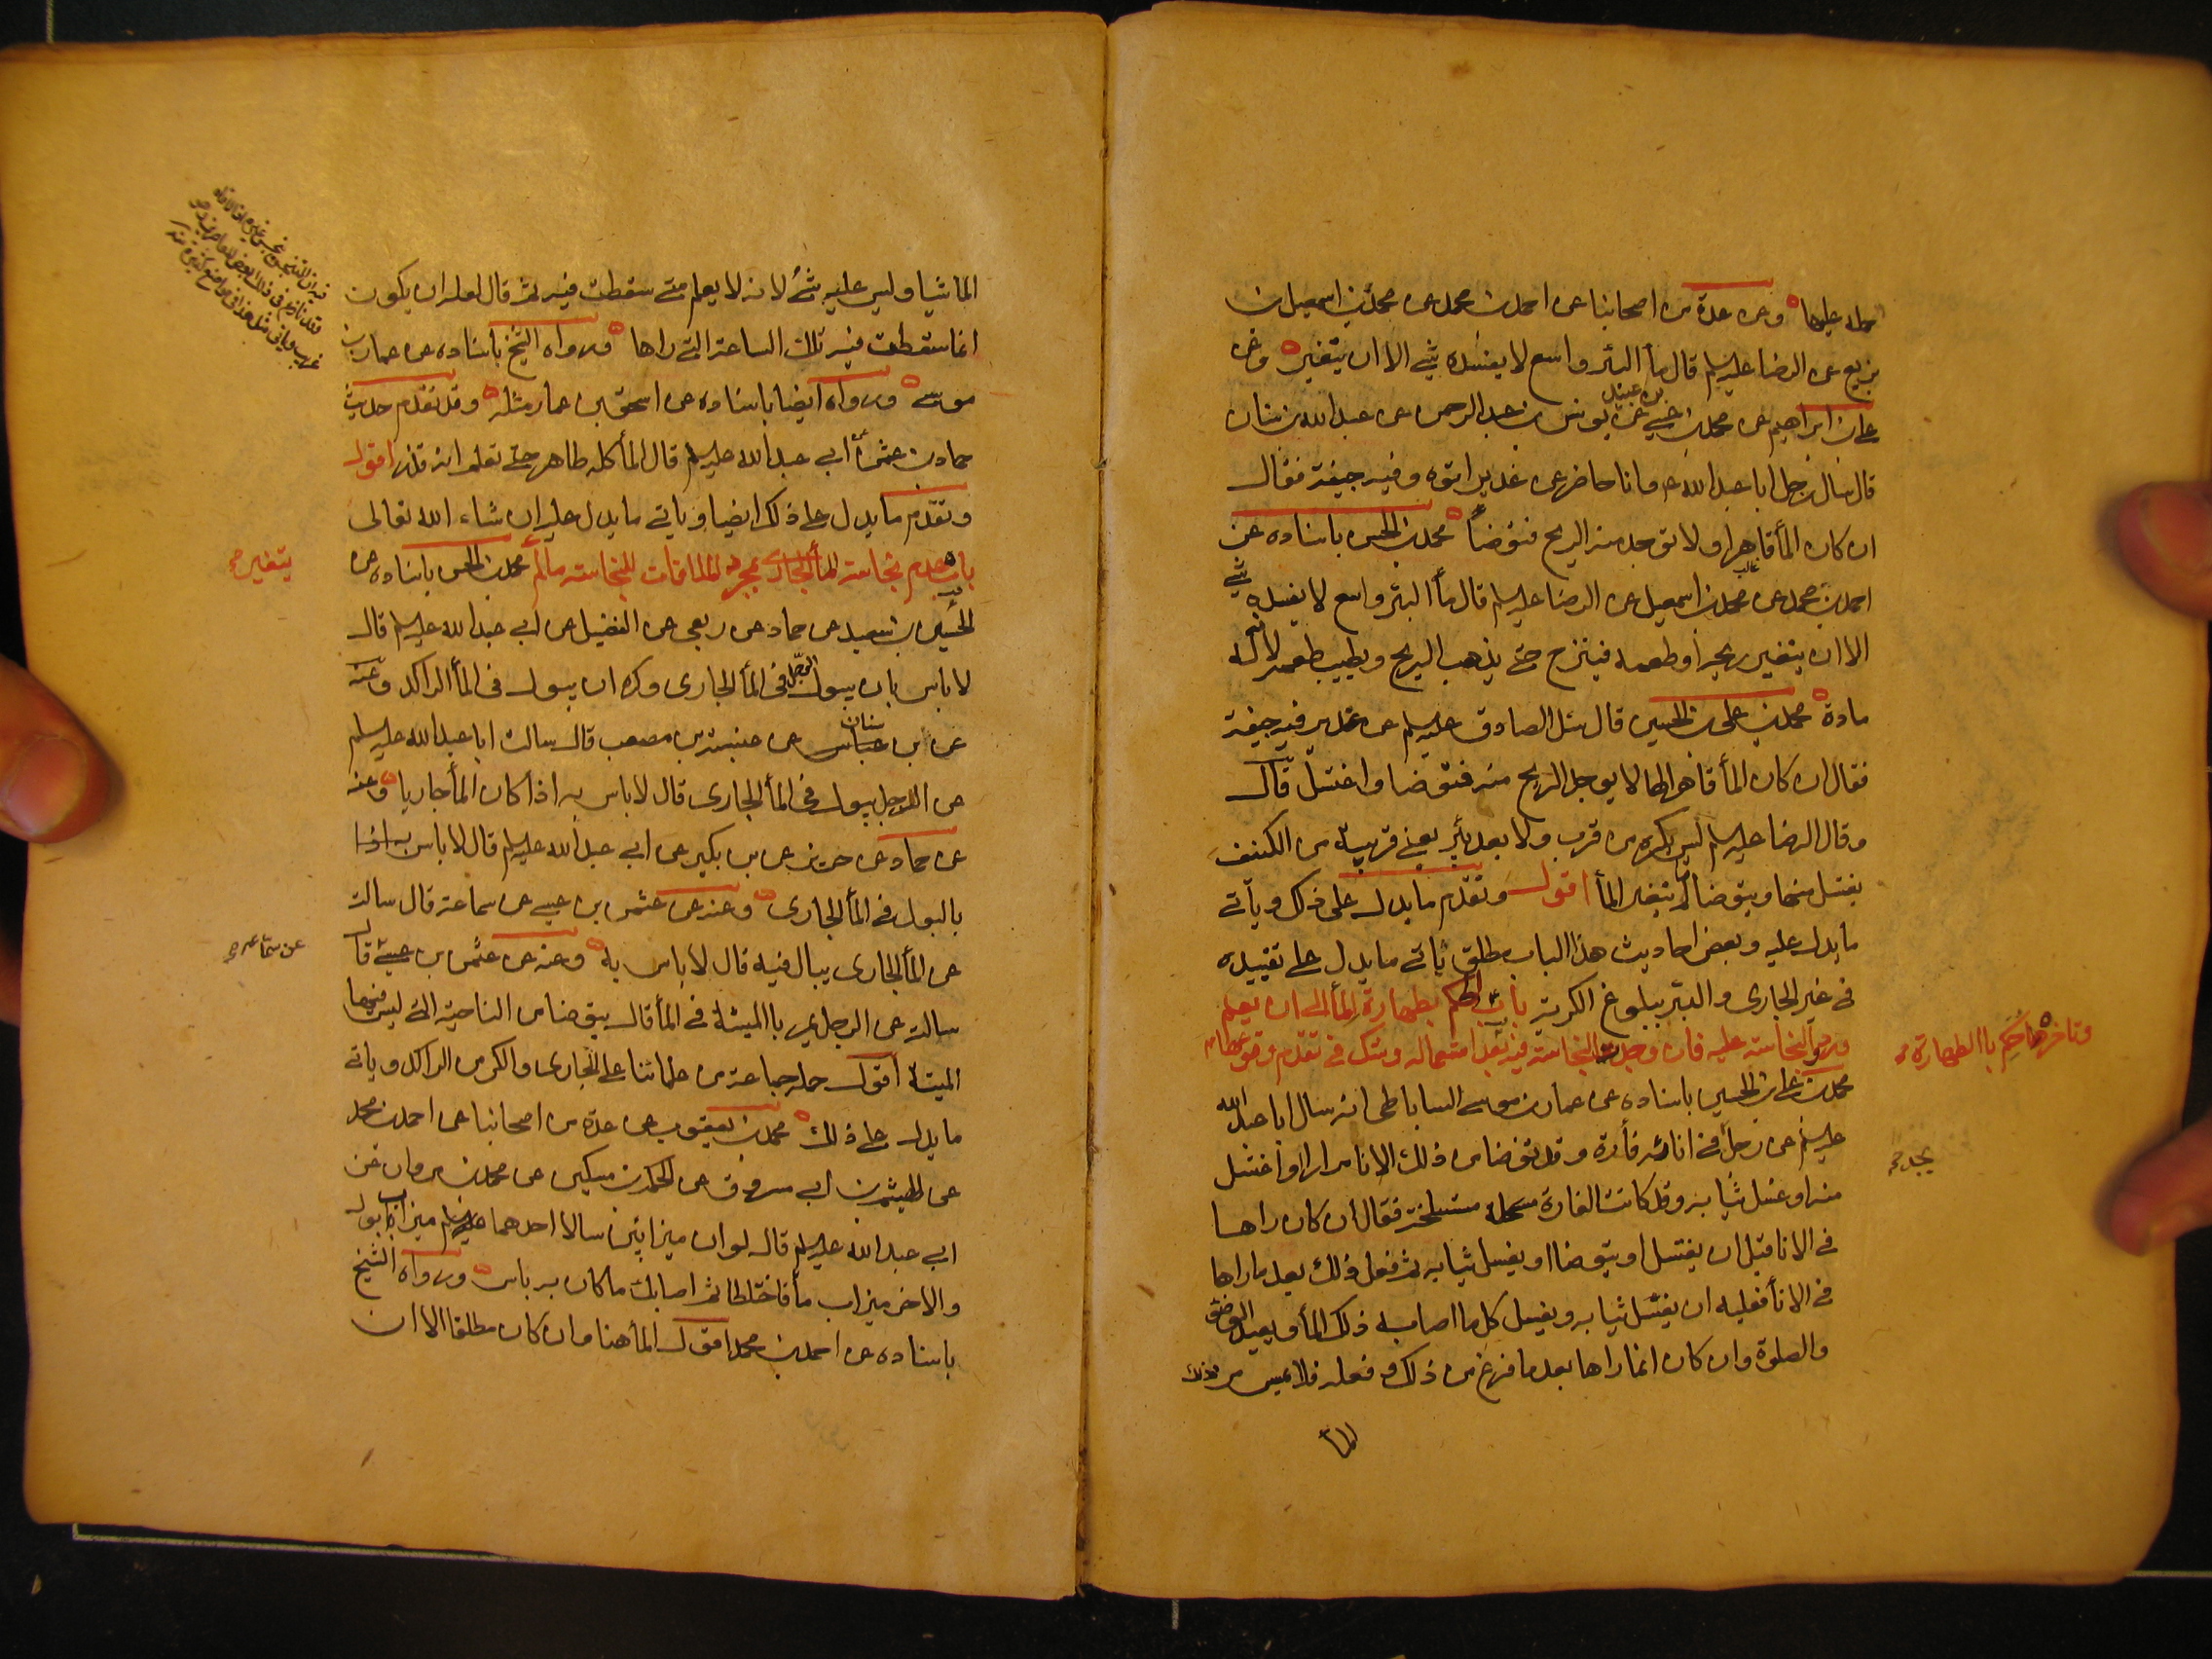 حمله عليها وعن عدة من اصحابنا عن احمد بن محمد عن محمد بن اسمعيل بن
بزيع عن الرضا عليه السلم قال ماء البئر واسع لا يفسده شئ الا ان يتغير وعن
على بن ابراهيم عن محمد بن عيسى بن عبيد عن يونس بن عبد الرحمن عن عبد الله بن سنان
قال سال رجل ابا عبد الله ع وانا حاضر عن غدير اتوه وفيه جيفة فقال
ان كان الماء قاهرا ولا توجد منه الريح فتوضأ محمد بن الحسن باسناده عن
احمد بن محمد عن محمد بن اسمعيل عن الرضا عليه السلم قال ماء البئر واسع لا يفسده شئ
الا ان يتغير ريحه او طعمه فينزح حتى يذهب الريح ويطيب طعمه لانه له
مادة محمد بن على بن الحسين قال سئل الصادق عليه السلم عن غدير فيه جيفة
فقال ان كان الماء قاهرا لها لا يوجد الريح منه فتوضا واغتسل قال
وقال الرضا عليه السلم ليس يكره من قرب ولا بعد بئر يعنى قريبة من الكنيف
يغتسل منها ويتوضا ما لم يتغير الماء اقول وتقدم ما يدل على ذلك وياتى
ما يدل عليه وبعض احاديث هذا الباب مطلق ياتى ما يدل على تقييده
فى غير الجارى والبئر ببلوغ الكرية باب الحكم بطهارة الماء الى ان يعلم
ورود النجاسة عليه فان وجدت النجاسة فيه بعد استعماله وشك فى تقدم وقوعها
وتاخرها حكم بالطهارة
محمد بن على بن الحسين باسناده عن عمار بن موسى الساباطى انه سال ابا عبد الله
عليه السلم عن رجل فى انائه فأرة وقد توضا من ذلك الانا مرارا او اغتسل
يجد
منه او غسل ثيابه وقد كانت الفارة متسلخة فقال ان كان راها
فى الانا قبل ان يغتسل او يتوضا او يغسل ثيابه ثم فعل ذلك بعد ما راها
فى الاناء فعليه ان يغسل ثيابه ويغسل كل ما اصابه ذلك الماء ويعيد الوضوء
والصلوة وان كان انما راها بعد ما فرغ من ذلك وفعله فلا يمس من
الماء شيئا وليس عليه شئ لانه لا يعلم متى سقطت فيه ثم قال لعله ان يكون
انما سقطت فيه تلك الساعة التى راها ورواه الشيخ باسناده عن عمار بن
موسى ورواه ايضا باسناده عن اسحق بن عمار مثله وقد تقدم حديث
حماد بن عثمن عن ابى عبد الله عليه السلم قال الماء كله طاهر حتى تعلم انه قذر اقول
وتقدم ما يدل على ذلك ايضا وياتى ما يدل عليه ان شاء الله تعالى
باب عدم نجاسة الماء الجارى بمجرد الملاقات للنجاسة مالم محمد بن الحسن باسناده عن
يتغير
الحسين بن سعيد عن حماد عن ربعى عن الفضيل عن ابى عبد الله عليه السلم قال
لا باس بان يبول الرجل فى الماء الجارى وكره ان يبول فى الماء الراكد وعنه
عن ابن سنان عن عنبسة بن مصعب قال سالت ابا عبد الله عليه السلم
عن الرجل يبول فى الماء الجارى قال لا باس به اذا كان الماء جاريا وعنه
عن حماد عن حريز عن بن بكير عن ابى عبد الله عليه السلم قال لا باس
بالبول فى الماء الجارى وعنه عن عثمن بن عيسى عن سماعة قال سالته
عن الماء الجارى يبال فيه قال لا باس به وعنه عن عثمن بن عيسى قال
عن سماعة
سالته عن الرجل يمر بالميتة فى الماء قال يتوضا من الناحية التى ليس فيها
الميتة اقول حمله جماعة من علمائنا على الجارى والكر من الراكد وياتى
ما يدل على ذلك محمد بن يعقوب عن عدة من اصحابنا عن احمد بن محمد
عن الهيثم بن ابى مسروق عن الحكم بن مسكين عن محمد بن مروان عن
ابى عبد الله عليه السلم قال لو ان ميزابين سالا احدهما ميزاب بول
والاخر ميزاب ماء فاختلطا ثم اصابك ما كان به باس ورواه الشيخ
باسناده عن احمد بن محمد اقول الماء هنا وان كان مطلقا الا ان